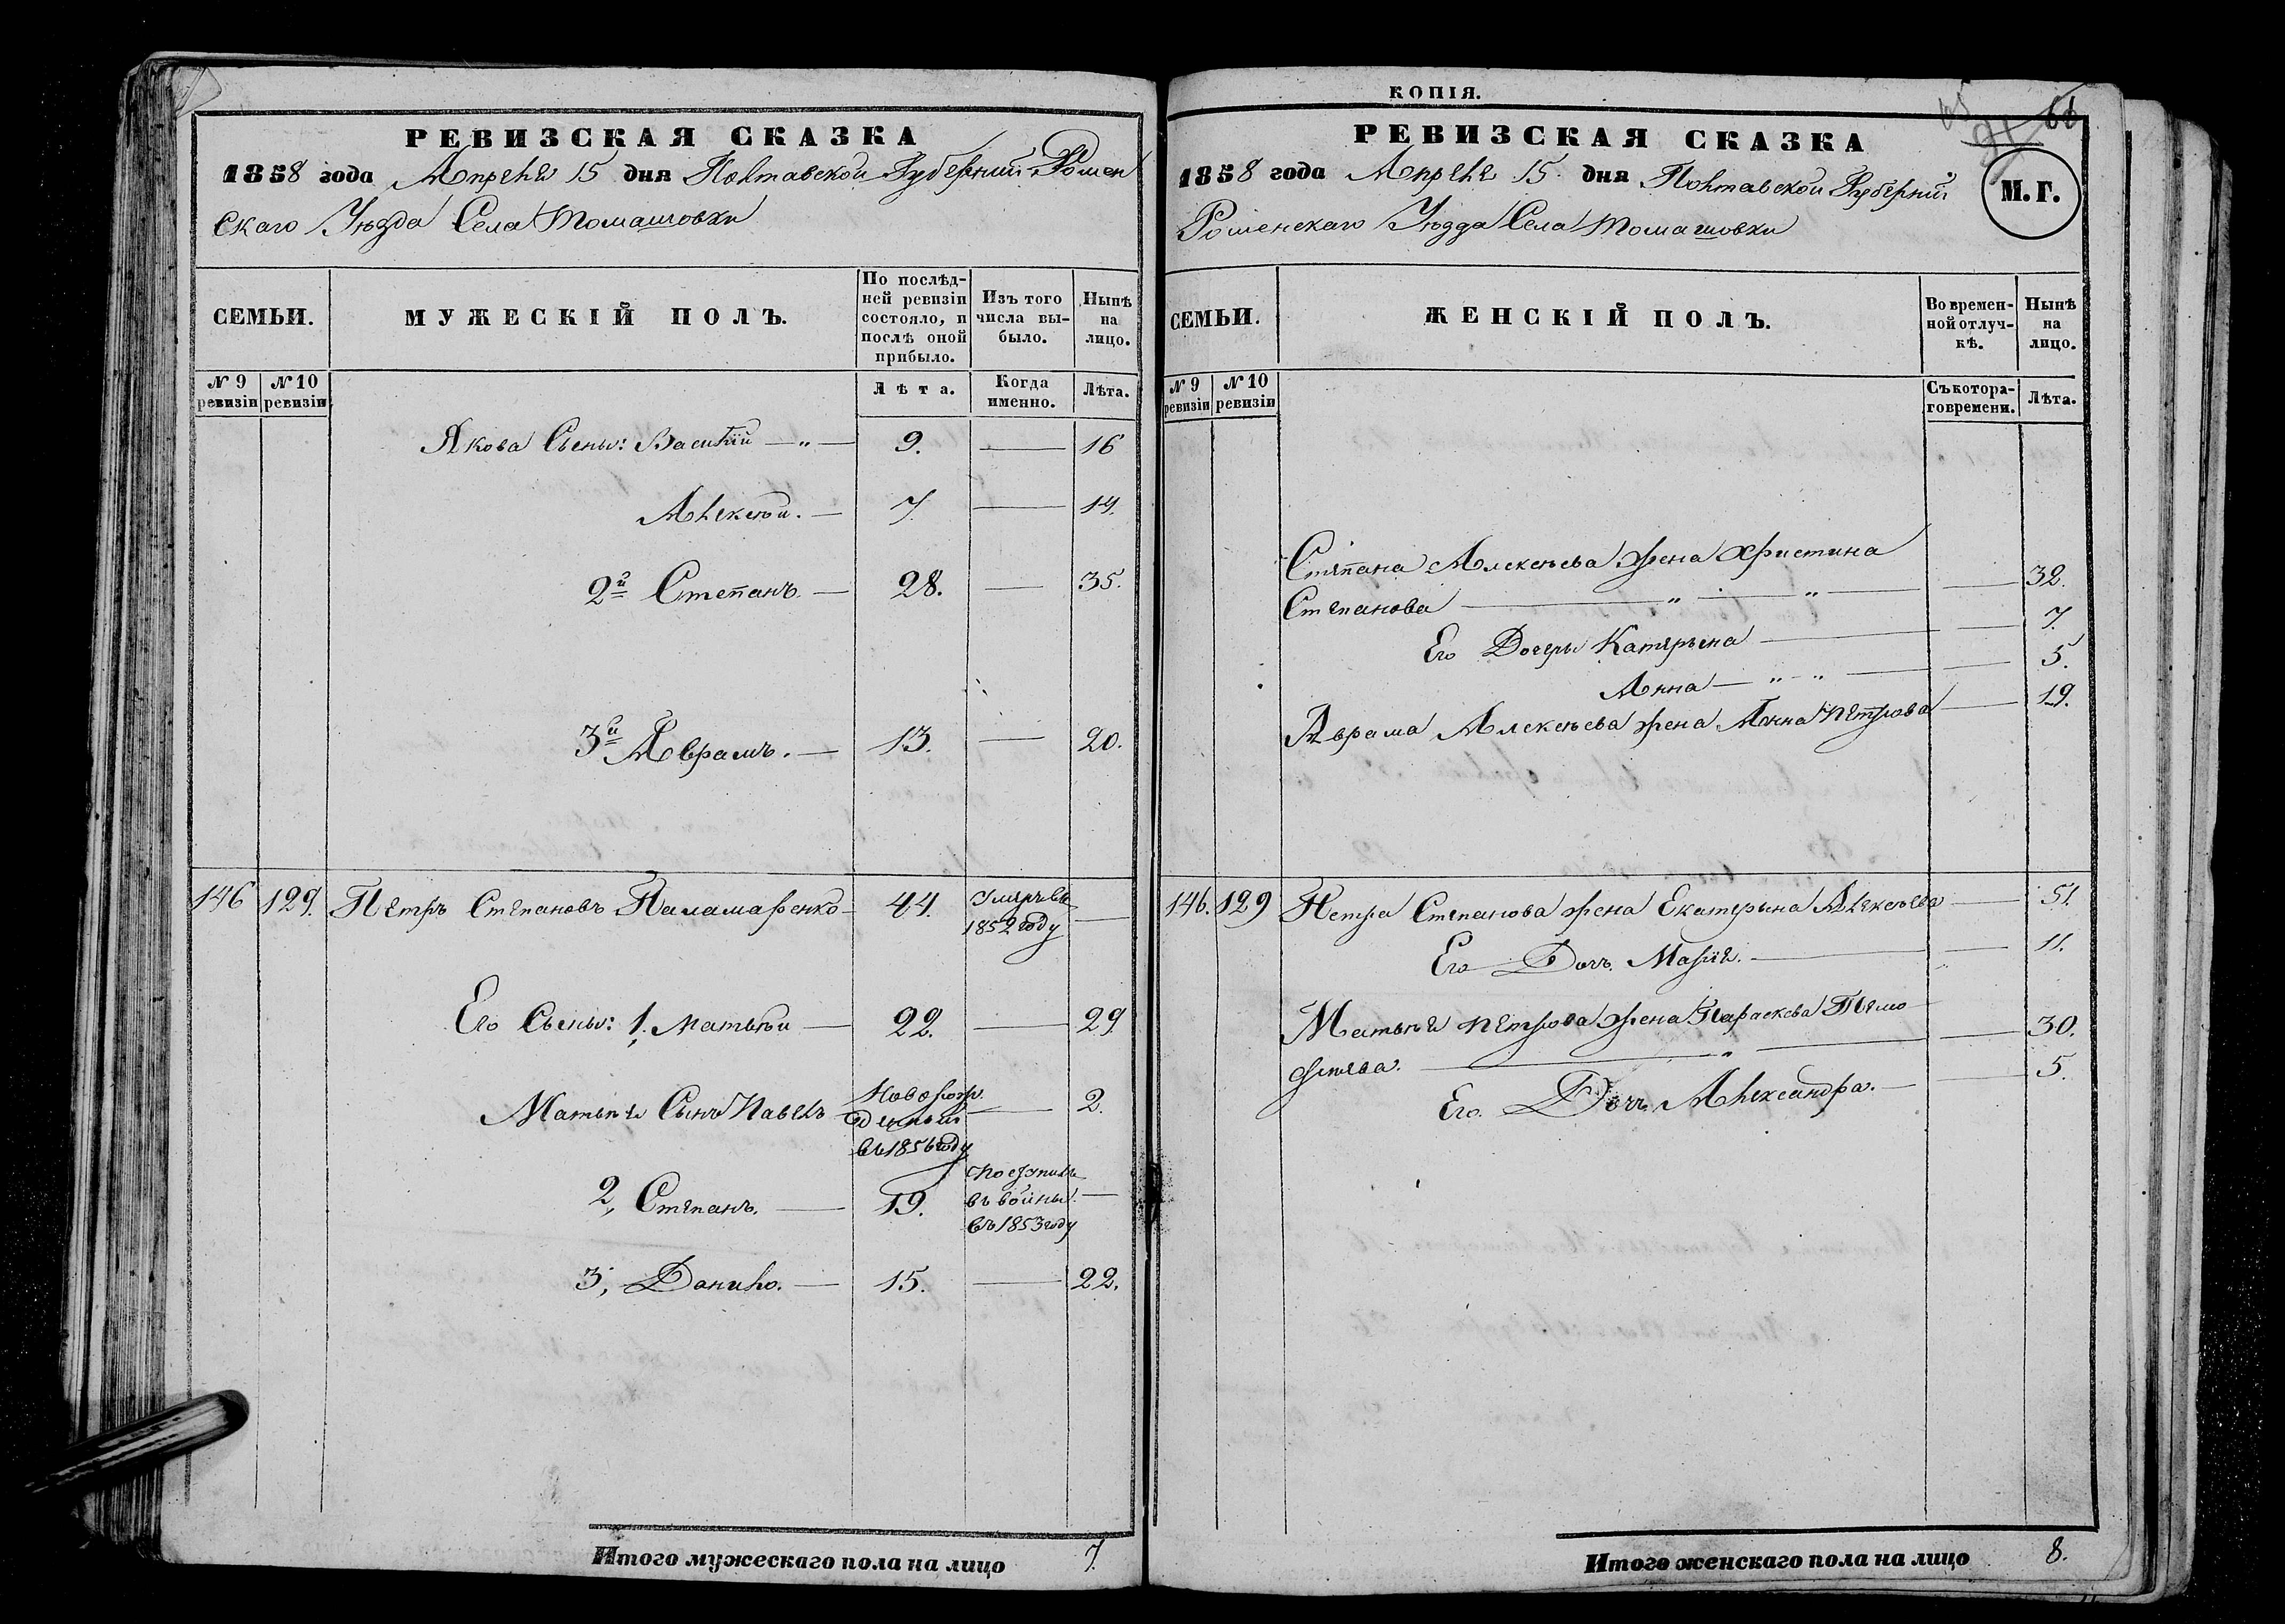 РЕВИЗСКАЯ СКАЗКА
1858 года Апреля 15 дня Полтавской Губерніи Ромен
скаго Уѣзда Села Томашовки
СЕМЬИ.
МУЖЕСКІЙ ПОЛЪ.
По послѣд-
ней ревизіи
состояло, и
послѣ оной
прибыло.
Изъ того
числа вы-
было.
Нынѣ
на
лицо.
№ 9 ревизіи
№ 10 ревизіи
Лѣта.
Когда именно.
Лѣта.
Якова Сыны: Василій — „ — 9. — 16
Алексѣй. — 7. — 14.
2й Степанъ — 28. — 35.
3й Аврамъ. — 13. — 20.
146 129. Петръ Степановъ Паламаренко 44. Умеръ въ
1852 году —
Его Сыны: 1, Матвѣй — 22. — 29
Матвѣя Сынъ Павелъ Новорож
денный — 2.
въ 1856 году
2, Степанъ. — 19. Поступилъ
въ войны —
въ 1853 году
3, Данило. — 15. — 22.
Итого мужескаго пола на лицо 7.
КОПІЯ.
66
91
РЕВИЗСКАЯ СКАЗКА
1858 года Апреля 15 дня Полтавской Губерній
М.Г.
Роменскаго Уѣзда Села Томашовки
СЕМЬИ.
ЖЕНСКІЙ ПОЛЪ.
Во времен-
ной отлуч-
кѣ.
Нынѣ
на
лицо.
№ 9 ревизіи
№ 10 ревизіи
Съ котора-
го времени.
Лѣта.
Степана Алексѣева жена Христина
Степанова — „ — „ — 32.
Его Дочеры Катерына — 7.
Анна — „ — „ — 5.
Аврама Алексѣева жена Анна Петрова — 19.
146. 129 Петра Степанова жена Екатерына Алексѣева — 51.
Его Дочь Марія. — 11.
Матвѣя Петрова жена Параскева Тимо
фѣева. — „ — 30.
Его Дочь Александра. — 5.
Итого женскаго пола на лицо 8.